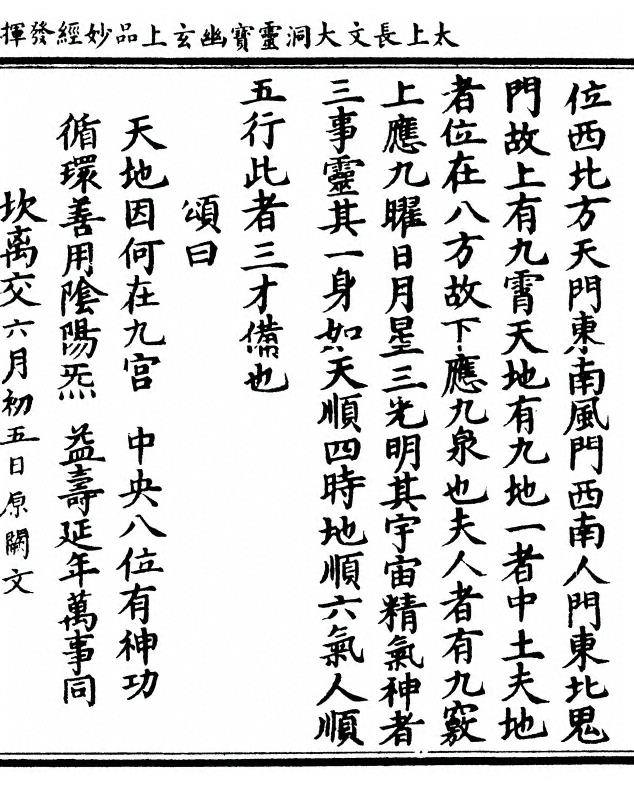 太上長文大洞靈寶幽玄上品妙經發揮
位西北方天門東南風門西南人門東北鬼
門故上有九霄天地有九地一者中土夫地
者位在八方故下應九泉也夫人者有九竅
上應九曜日月星三光明其宇宙精氣神者
三事靈其一身如天順四時地順六氣人順
五行此者三才備也
頌曰
天地因何在九宮　中央八位有神功
循環善用陰陽炁　益壽延年萬事同
坎离交六月初五日原闕文